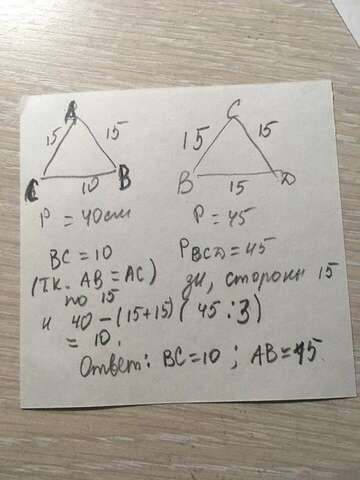 A
15 15
C 10 B
P = 40см
BC = 10
(т.к. AB = AC)
по 15
и 40 - (15+15)
= 10.
C
15 15
B 15 D
P = 45
PBCD = 45
зн, стороны 15
(45 : 3)
Ответ: BC = 10 ; AB = 15.